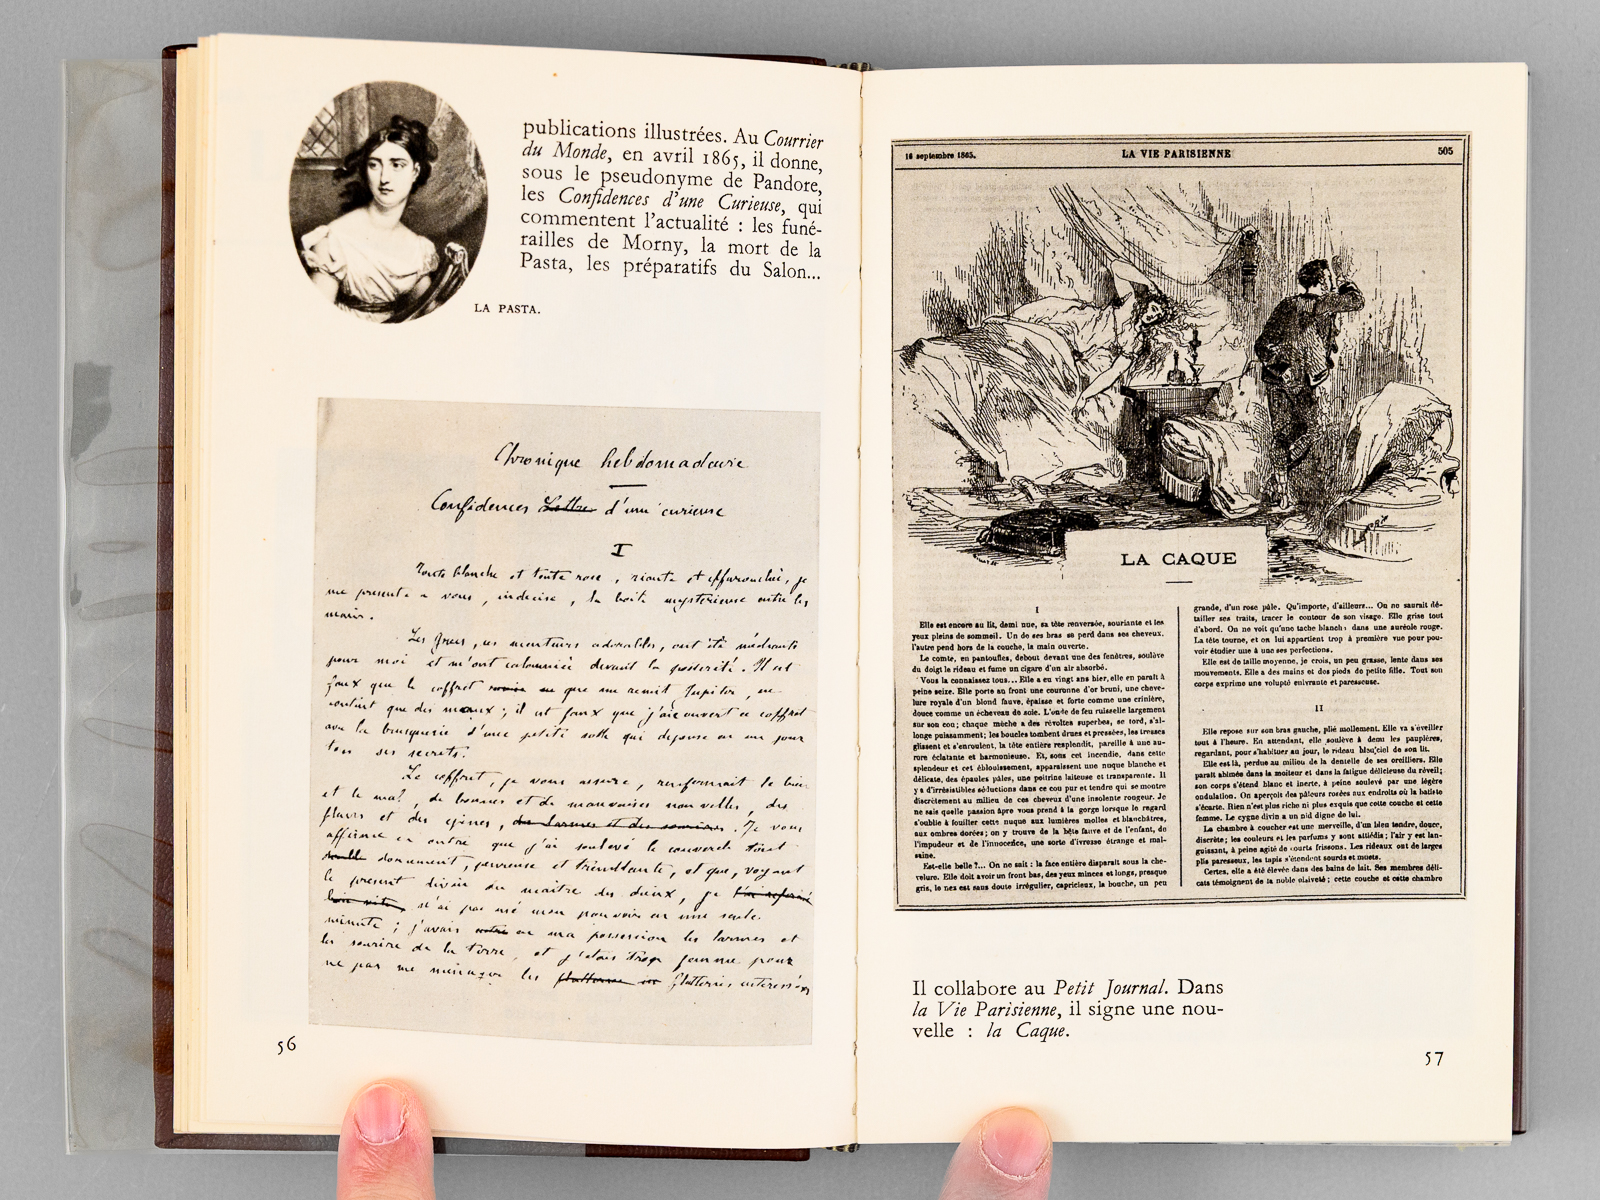 publications illustrées. Au Courrier
du Monde, en avril 1865, il donne,
sous le pseudonyme de Pandore,
les Confidences d'une Curieuse, qui
commentent l'actualité : les funé-
railles de Morny, la mort de la
Pasta, les préparatifs du Salon...
LA PASTA.
Chronique hebdomadaire
Confidences Lettre d'une curieuse
I
Toute blanche et toute rose, riante et effarouchée, je
me présente à vous, indécise, la boîte mystérieuse entre les
mains.
Les Grecs, ces menteurs adorables, ont été méchants
pour moi et m'ont calomniée devant la postérité. Il est
faux que le coffret que me remit Jupiter, ne
contint que des maux ; il est faux que j'aie ouvert ce coffret
avec la brusquerie d'une petite sotte qui dépense en un jour
tous ses secrets.
Le coffret, je vous assure, renfermait le bien
et le mal, de bonnes et de mauvaises nouvelles, des
fleurs et des épines, des larmes et des sourires. Je vous
affirme en outre que j'ai soulevé le couvercle tout
doucement, peureuse et tremblante, et que, voyant
le présent divin du maître des dieux, je l'ai refermé
bien vite, n'ai pas usé mon pouvoir en une seule
minute ; j'avais en ma possession les larmes et
les sourires de la terre, et j'étais trop femme pour
ne pas me ménager les flatteries intéressées
56
16 septembre 1865.
LA VIE PARISIENNE
505
LA CAQUE
I
Elle est encore au lit, demi nue, sa tête renversée, souriante et les
yeux pleins de sommeil. Un de ses bras se perd dans ses cheveux.
l'autre pend hors de la couche, la main ouverte.
Le comte, en pantoufles, debout devant une des fenêtres, soulève
du doigt le rideau et fume un cigare d'un air absorbé.
Vous la connaissez tous... Elle a eu vingt ans hier, elle en paraît à
peine seize. Elle porte au front une couronne d'or bruni, une cheve-
lure royale d'un blond fauve, épaisse et forte comme une crinière,
douce comme un écheveau de soie. L'onde de feu ruisselle largement
sur son cou; chaque mèche a des révoltes superbes, se tord, s'al-
longe puissamment; les boucles tombent drues et pressées, les tresses
glissent et s'enroulent, la tête entière resplendit, pareille à une au-
rore éclatante et harmonieuse. Et, sous cet incendie, dans cette
splendeur et cet éblouissement, apparaissent une nuque blanche et
délicate, des épaules pâles, une poitrine laiteuse et transparente. Il
y a d'irrésistibles séductions dans ce cou pur et tendre qui se montre
discrètement au milieu de ces cheveux d'une insolente rougeur. Je
ne sais quelle passion âpre vous prend à la gorge lorsque le regard
s'oublie à fouiller cette nuque aux lumières molles et blanchâtres,
aux ombres dorées; on y trouve de la bête fauve et de l'enfant, de
l'impudeur et de l'innocence, une sorte d'ivresse étrange et mal-
saine.
Est-elle belle ?... On ne sait : la face entière disparaît sous la che-
velure. Elle doit avoir un front bas, des yeux minces et longs, presque
gris, le nez est sans doute irrégulier, capricieux, la bouche, un peu
grande, d'un rose pâle. Qu'importe, d'ailleurs... On ne saurait dé-
tailler ses traits, tracer le contour de son visage. Elle grise tout
d'abord. On ne voit qu'une tache blanche dans une auréole rouge.
La tête tourne, et on lui appartient trop à première vue pour pou-
voir étudier une à une ses perfections.
Elle est de taille moyenne, je crois, un peu grasse, lente dans ses
mouvements. Elle a des mains et des pieds de petite fille. Tout son
corps exprime une volupté enivrante et paresseuse.
II
Elle repose sur son bras gauche, plié mollement. Elle va s'éveiller
tout à l'heure. En attendant, elle soulève à demi les paupières,
regardant, pour s'habituer au jour, le rideau bleu ciel de son lit.
Elle est là, perdue au milieu de la dentelle de ses oreillers. Elle
paraît abîmée dans la moiteur et dans la fatigue délicieuse du réveil;
son corps s'étend blanc et inerte, à peine soulevé par une légère
ondulation. On aperçoit des pâleurs rosées aux endroits où la batiste
s'écarte. Rien n'est plus riche ni plus exquis que cette couche et cette
femme. Le cygne divin a un nid digne de lui.
La chambre à coucher est une merveille, d'un bleu tendre, douce,
discrète; les couleurs et les parfums y sont attiédis; l'air y est lan-
guissant, à peine agité de courts frissons. Les rideaux ont de larges
plis paresseux, les tapis s'étendent sourds et muets.
Certes, elle a été élevée dans des bains de lait. Ses membres déli-
cats témoignent de sa noble oisiveté; cette couche et cette chambre
Il collabore au Petit Journal. Dans
la Vie Parisienne, il signe une nou-
velle : la Caque.
57